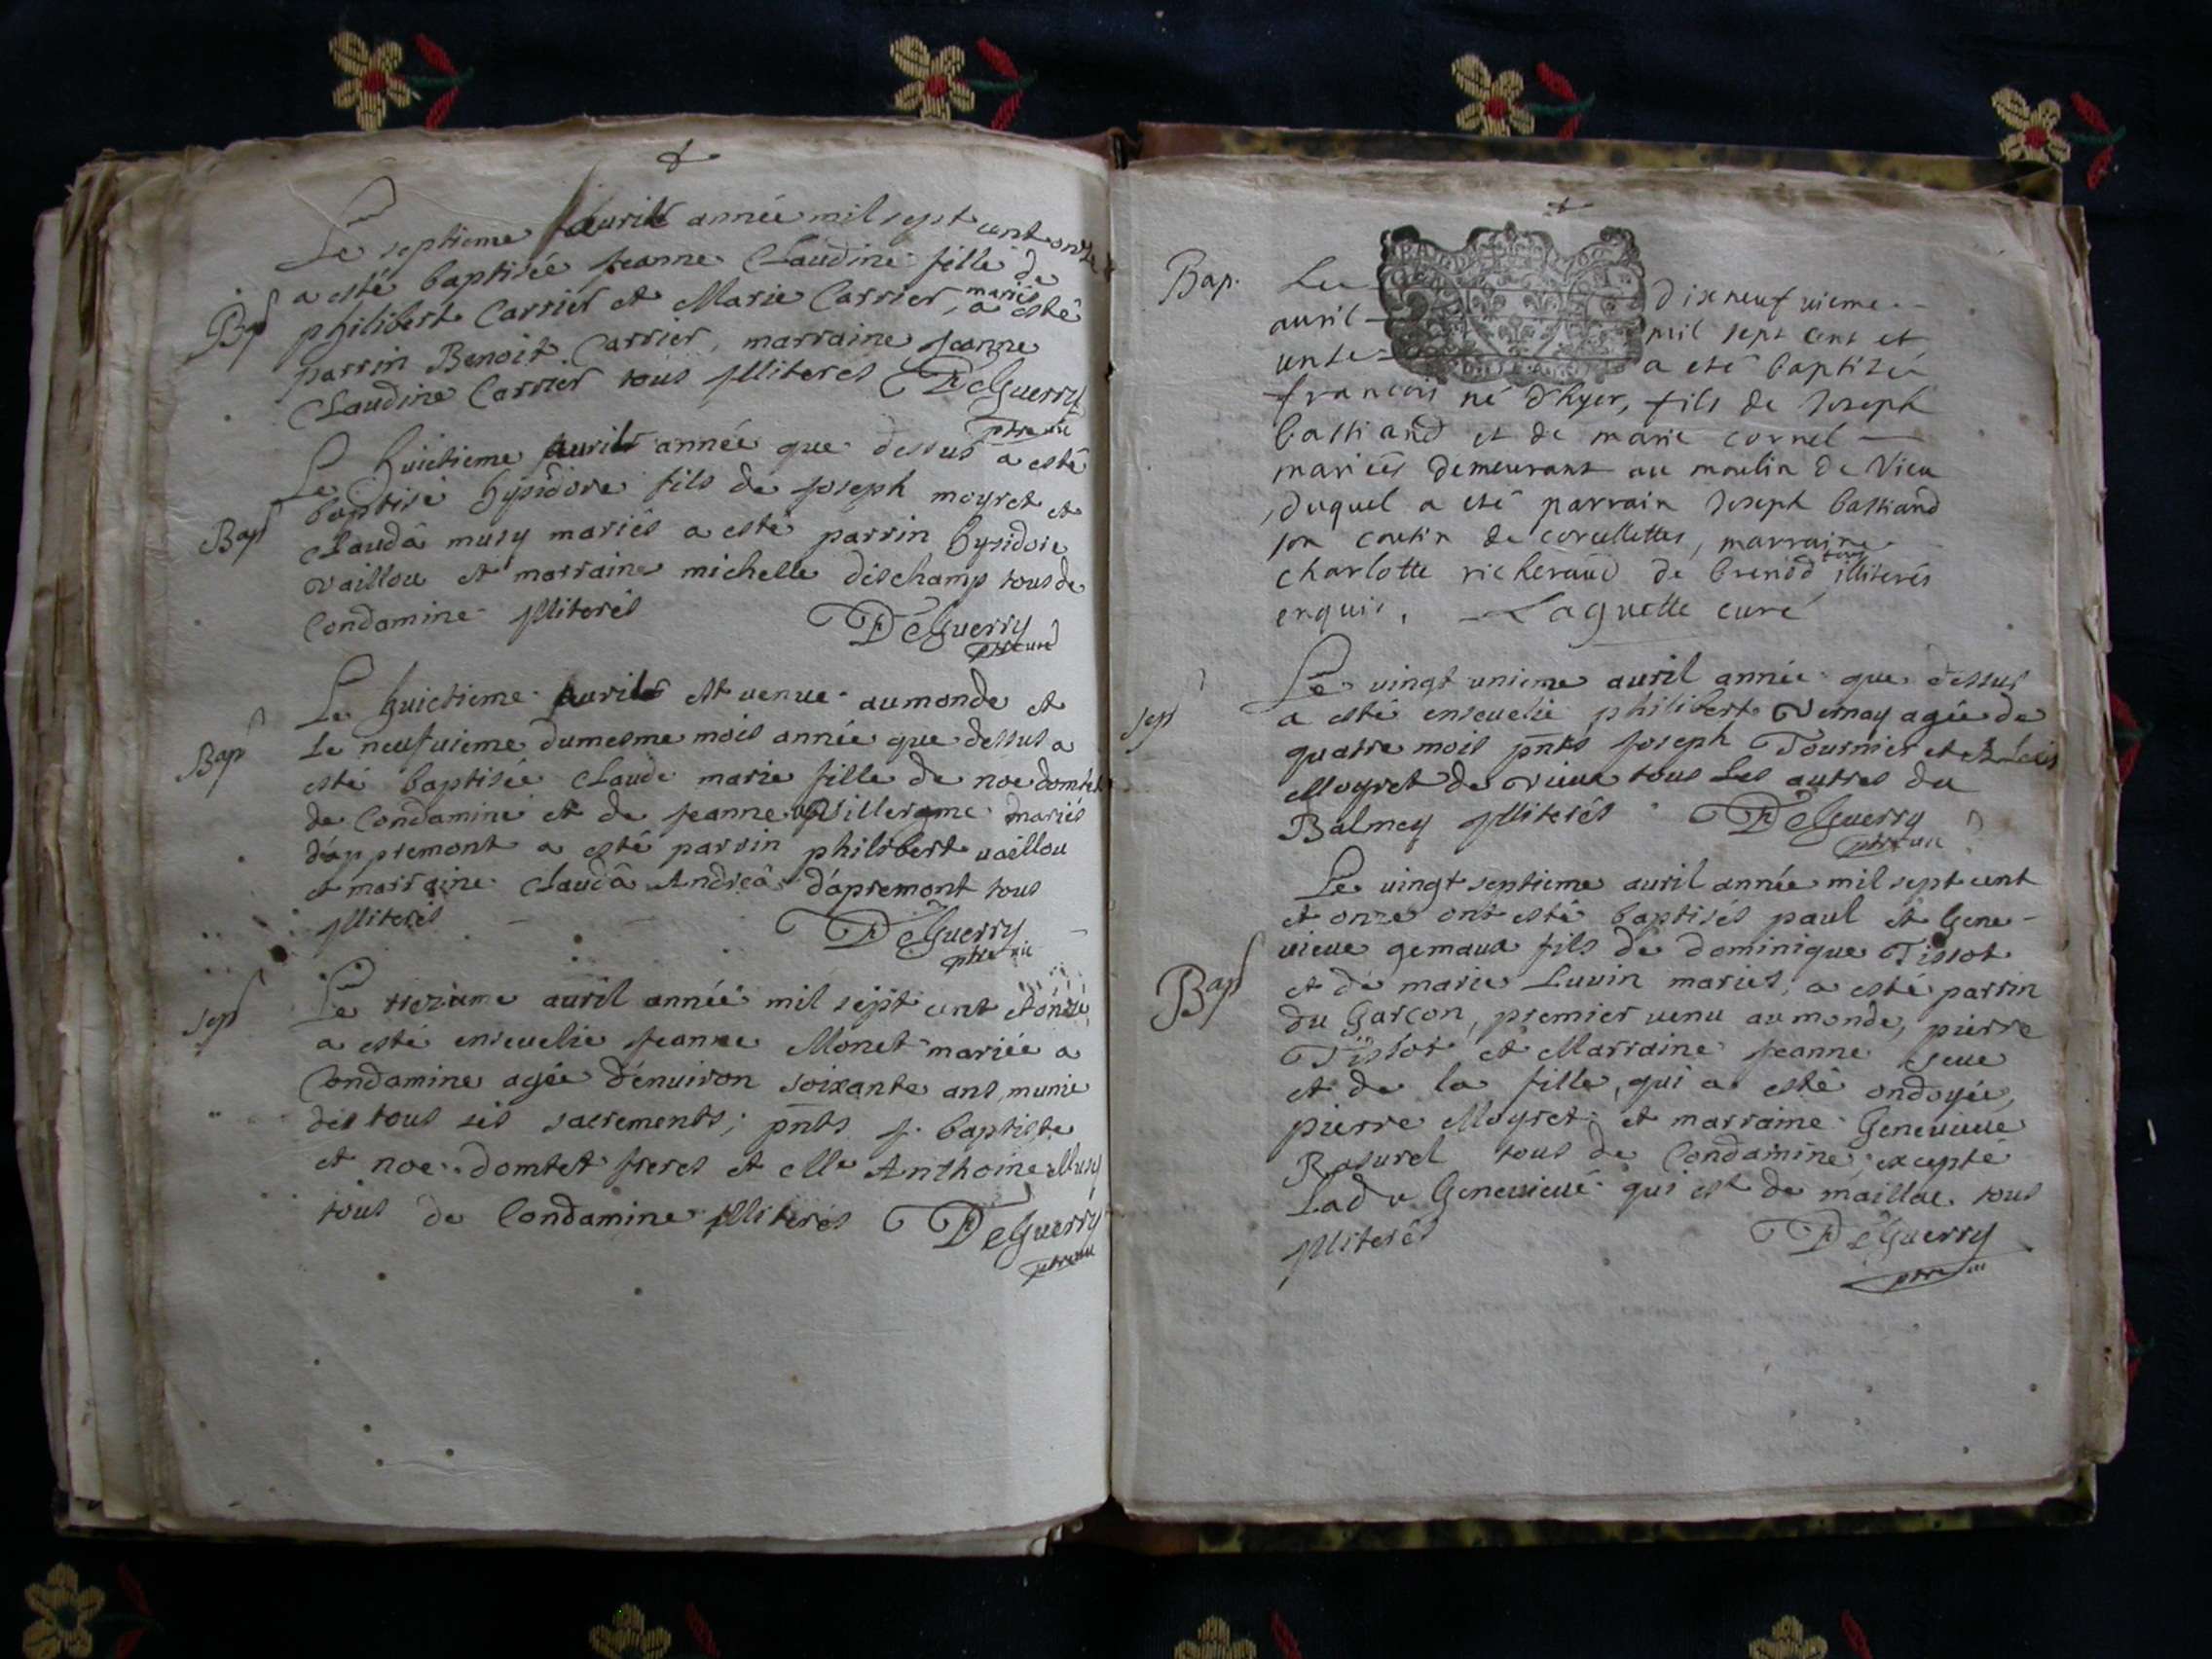 Le septieme auril année mil sept cent onze
a esté baptisée jeanne Claudine fille de
Bap philibert Carrier et Marie Carrier mariés, a esté
parrin Benoit Carrier, marraine jeanne
Claudine Carrier tous jlliteres DeGuerry
ptre curé
Le huictieme auril année que dessus a esté
baptisé hysidore fils de joseph moyret et
Bap Claudâ musy mariés a esté parrin hysidore
vaillou et marraine michelle deschamp tous de
Condamine jlliterés DeGuerry
ptre curé
Le huictieme auril est uenue au monde et
Bap Le neufuieme du mesme mois année que dessus a
esté baptisée Claude marie fille de noe domtet
de Condamine et de jeanne Willerme mariés
d'appremont a esté parrin philibert uaillou
et marraine Claudâ Andreâ d'apremont tous
jlliterés DeGuerry
ptre curé
sep Le treizieme auril année mil sept cent et onze
a esté enseuelie jeanne Monet mariée a
Condamine agée d'enuiron soixante ans, munie
des tous ses sacrements; pnts j. baptiste
et noe domtet freres et Anthoine Musy
tous de Condamine jlliterés DeGuerry
ptre curé
Bap. Le dixneufuieme
auril mil sept cent et
unze a eté baptizé
francois né d'hyer, fils de Joseph
bastiand et de marie cornel
mariés demeurant au moulin de Vieu
duquel a eté parrain Joseph bastiand
son cousin de corcellettes, marraine
charlotte richeraud de brenod tous illiterés
enquis. Laguette curé
Le uingt unieme auril année que dessus
sep a esté enseuelie philiberte Vernay agée de
quatre mois pnts joseph Tournier et
Moyret de vieux tous Les autres du
Balmey jlliterés DeGuerry
ptre curé
Le uingt septieme auril année mil sept cent
et onze ont esté baptisés paul et Gene-
uieue gemaux fils de dominique Tissot
Bap et de marie Luuin mariés, a esté parrin
du Garcon, premier uenu au monde, pierre
Tissot et Marraine jeanne seue
et de la fille, qui a esté ondoyée,
pierre Moyret; et marraine Geneuieue
Rasurel tous de Condamine; excepté
Lad e Geneuieue qui est de maillac tous
jlliterés DeGuerry
ptre curé